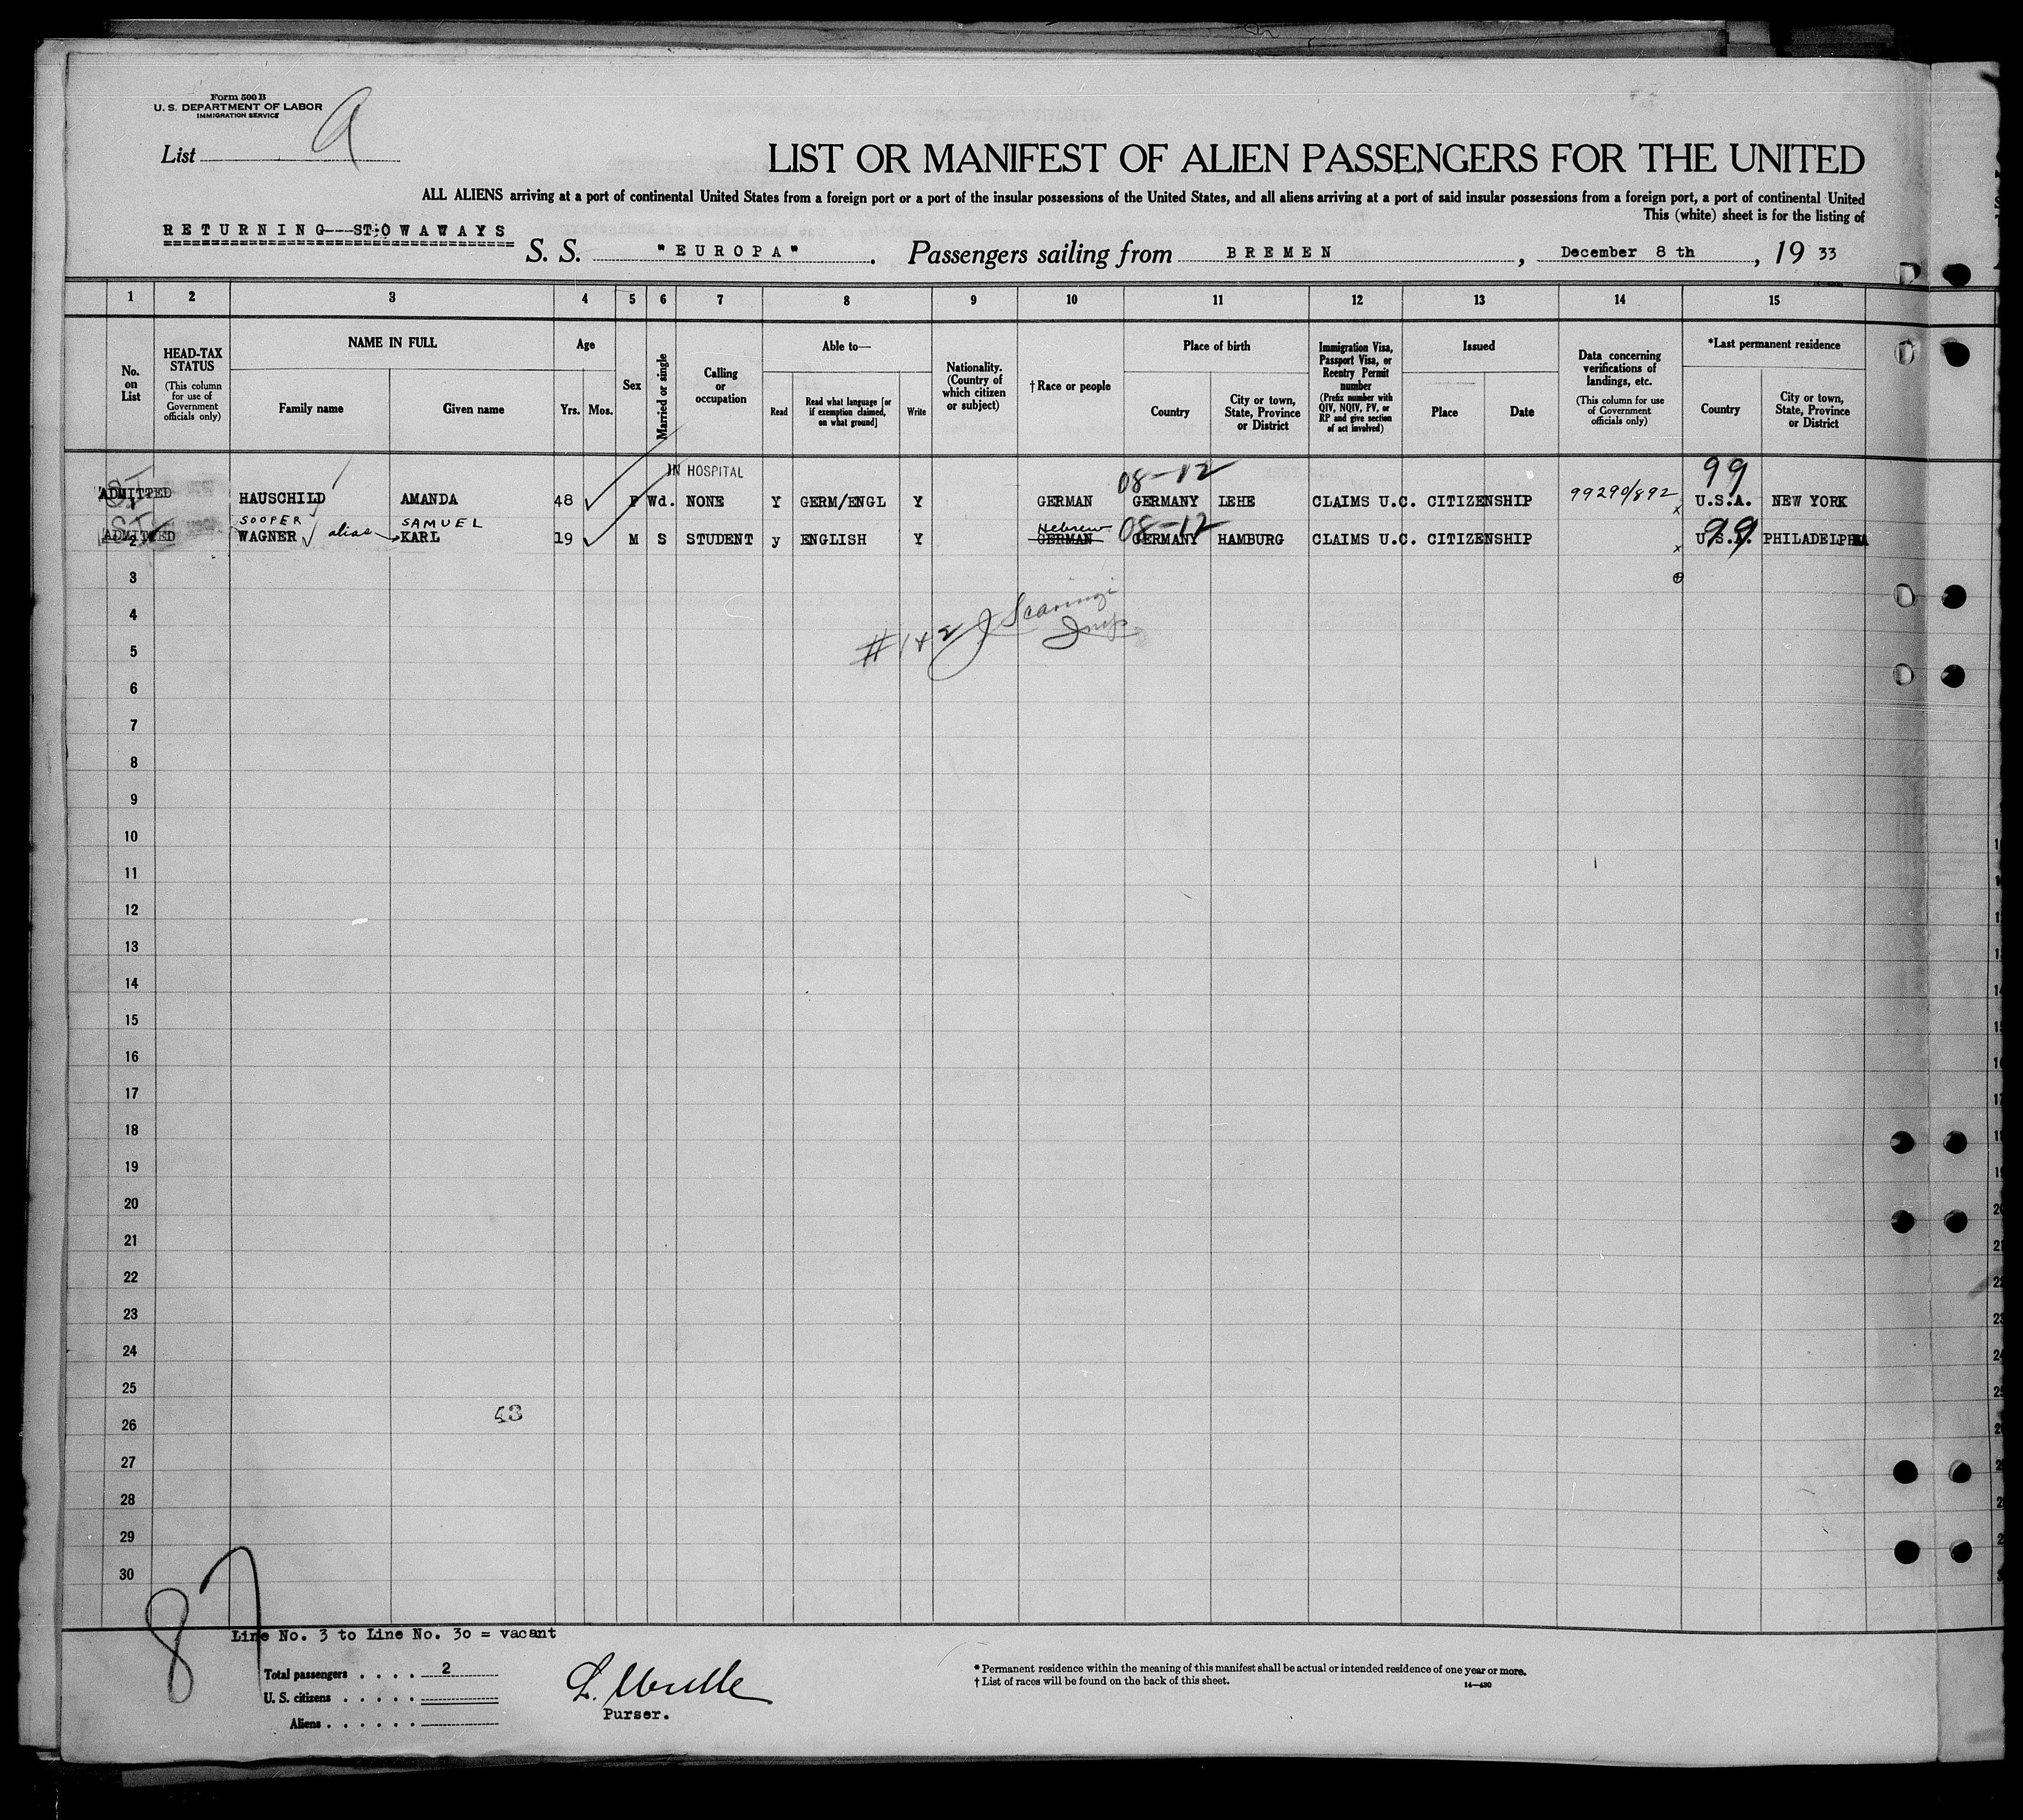 Form 500 B
U. S. DEPARTMENT OF LABOR
IMMIGRATION SERVICE
List a
LIST OR MANIFEST OF ALIEN PASSENGERS FOR THE UNITED
ALL ALIENS arriving at a port of continental United States from a foreign port or a port of the insular possessions of the United States, and all aliens arriving at a port of said insular possessions from a foreign port, a port of continental United
This (white) sheet is for the listing of
RETURNING---STOWAWAYS
S. S. "EUROPA". Passengers sailing from BREMEN, December 8 th, 19 33
1 2 3 4 5 6 7 8 9 10 11 12 13 14 15
No. on List
HEAD-TAX STATUS (This column for use of Government officials only)
NAME IN FULL
Family name Given name
Age
Yrs. Mos.
Sex
Married or single
Calling or occupation
Able to—
Read Read what language [or if exemption claimed, on what ground] Write
Nationality. (Country of which citizen or subject)
†Race or people
Place of birth
Country City or town, State, Province or District
Immigration Visa, Passport Visa, or Reentry Permit number (Prefix number with QIV, NQIV, PV, or RP and give section of act involved)
Issued
Place Date
Data concerning verifications of landings, etc. (This column for use of Government officials only)
*Last permanent residence
Country City or town, State, Province or District
IN HOSPITAL 08-12 99
ST
ADMITTED 1 HAUSCHILD AMANDA 48 F Wd. NONE Y GERM/ENGL Y GERMAN GERMANY LEHE CLAIMS U.C. CITIZENSHIP 99290/892 x U.S.A. NEW YORK
ST SOOPER SAMUEL Hebrew 08-12 99
ADMITTED 2 WAGNER alias KARL 19 M S STUDENT y ENGLISH Y GERMAN GERMANY HAMBURG CLAIMS U.C. CITIZENSHIP x U.S.A. PHILADELPHIA
3
4
#1+2 J Scaringi
Insp
5
6
7
8
9
10
11
12
13
14
15
16
17
18
19
20
21
22
23
24
25
26 43
27
28
29
30
87
Line No. 3 to Line No. 30 = vacant
Total passengers . . . . 2
U. S. citizens . . . . .
Aliens . . . . . .
Purser.
* Permanent residence within the meaning of this manifest shall be actual or intended residence of one year or more.
† List of races will be found on the back of this sheet.
14—430